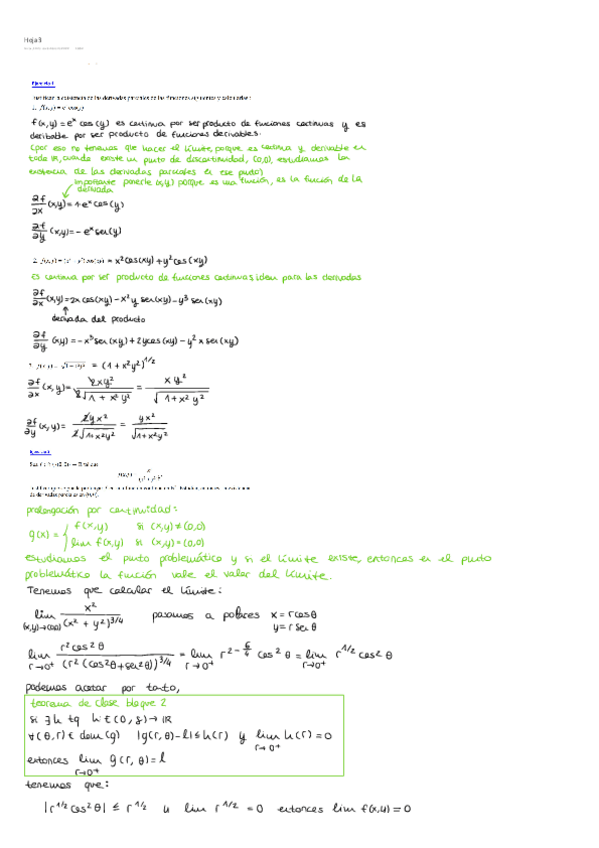 Hoja 3
f(x,y) = e^x cos(y) es continua por ser producto de funciones continuas y es
derivable por ser producto de funciones derivables.
(por eso no tenemos que hacer el límite, porque es continua y derivable en
todo IR, cuando existe un punto de discontinuidad, (0,0), estudiamos la
existencia de las derivadas parciales en ese punto)
importante ponerle (x,y) porque es una función, es la función de la
derivada
∂f/∂x (x,y) = +e^x cos(y)
∂f/∂y (x,y) = - e^x sen(y)
= x² cos(xy) + y² cos(xy)
Es continua por ser producto de funciones continuas, idem para las derivadas
∂f/∂x (x,y) = 2x cos(xy) - x² y sen(xy) - y³ sen(xy)
derivada del producto
∂f/∂y (x,y) = - x³ sen(xy) + 2y cos(xy) - y² x sen(xy)
= (1 + x² y²)^1/2
∂f/∂x (x,y) = 2xy² / 2√(1 + x² y²) = xy² / √(1 + x² y²)
∂f/∂y (x,y) = 2yx² / 2√(1+x² y²) = yx² / √(1+x² y²)
prolongación por continuidad:
g(x) = { f(x,y) si (x,y) ≠ (0,0)
lim f(x,y) si (x,y) = (0,0)
estudiamos el punto problemático y si el límite existe, entonces en el punto
problemático la función vale el valor del límite.
Tenemos que calcular el límite:
lim (x,y)→(0,0) x² / (x² + y²)^3/4 pasamos a polares x = r cos θ
y = r sen θ
lim r→0⁺ r² cos² θ / (r² (cos² θ + sen² θ))^3/4 = lim r→0⁺ r^(2 - 6/4) cos² θ = lim r→0⁺ r^1/2 cos² θ
podemos acotar por tanto,
teorema de clase bloque 2
si ∃ h tq h: (0, δ) → IR
∀(θ,r) ∈ dom(g) |g(r,θ) - l| ≤ h(r) y lim r→0⁺ h(r) = 0
entonces lim r→0⁺ g(r, θ) = l
tenemos que:
|r^1/2 cos² θ| ≤ r^1/2 y lim r^1/2 = 0 entonces lim f(x,y) = 0